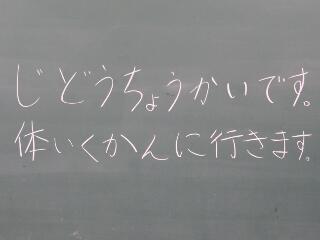 じどうちょうかいです。
体いくかんに行きます。